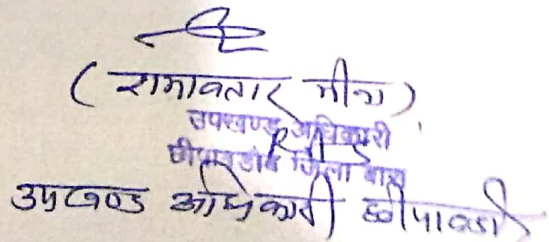 (रामावतार मीना)
उपखण्ड अधिकारी
छीपाबडौद जिला बारां
उपखण्ड अधिकारी छीपाबडौद